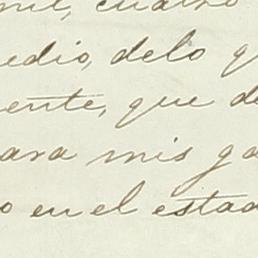 mil, cuatro
edio, delo q
ente, que de
ara mis ga
o en el estad